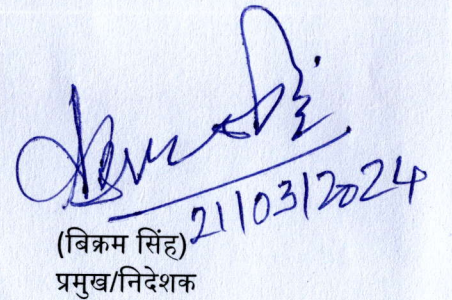 21/03/2024
(बिक्रम सिंह)
प्रमुख/निदेशक